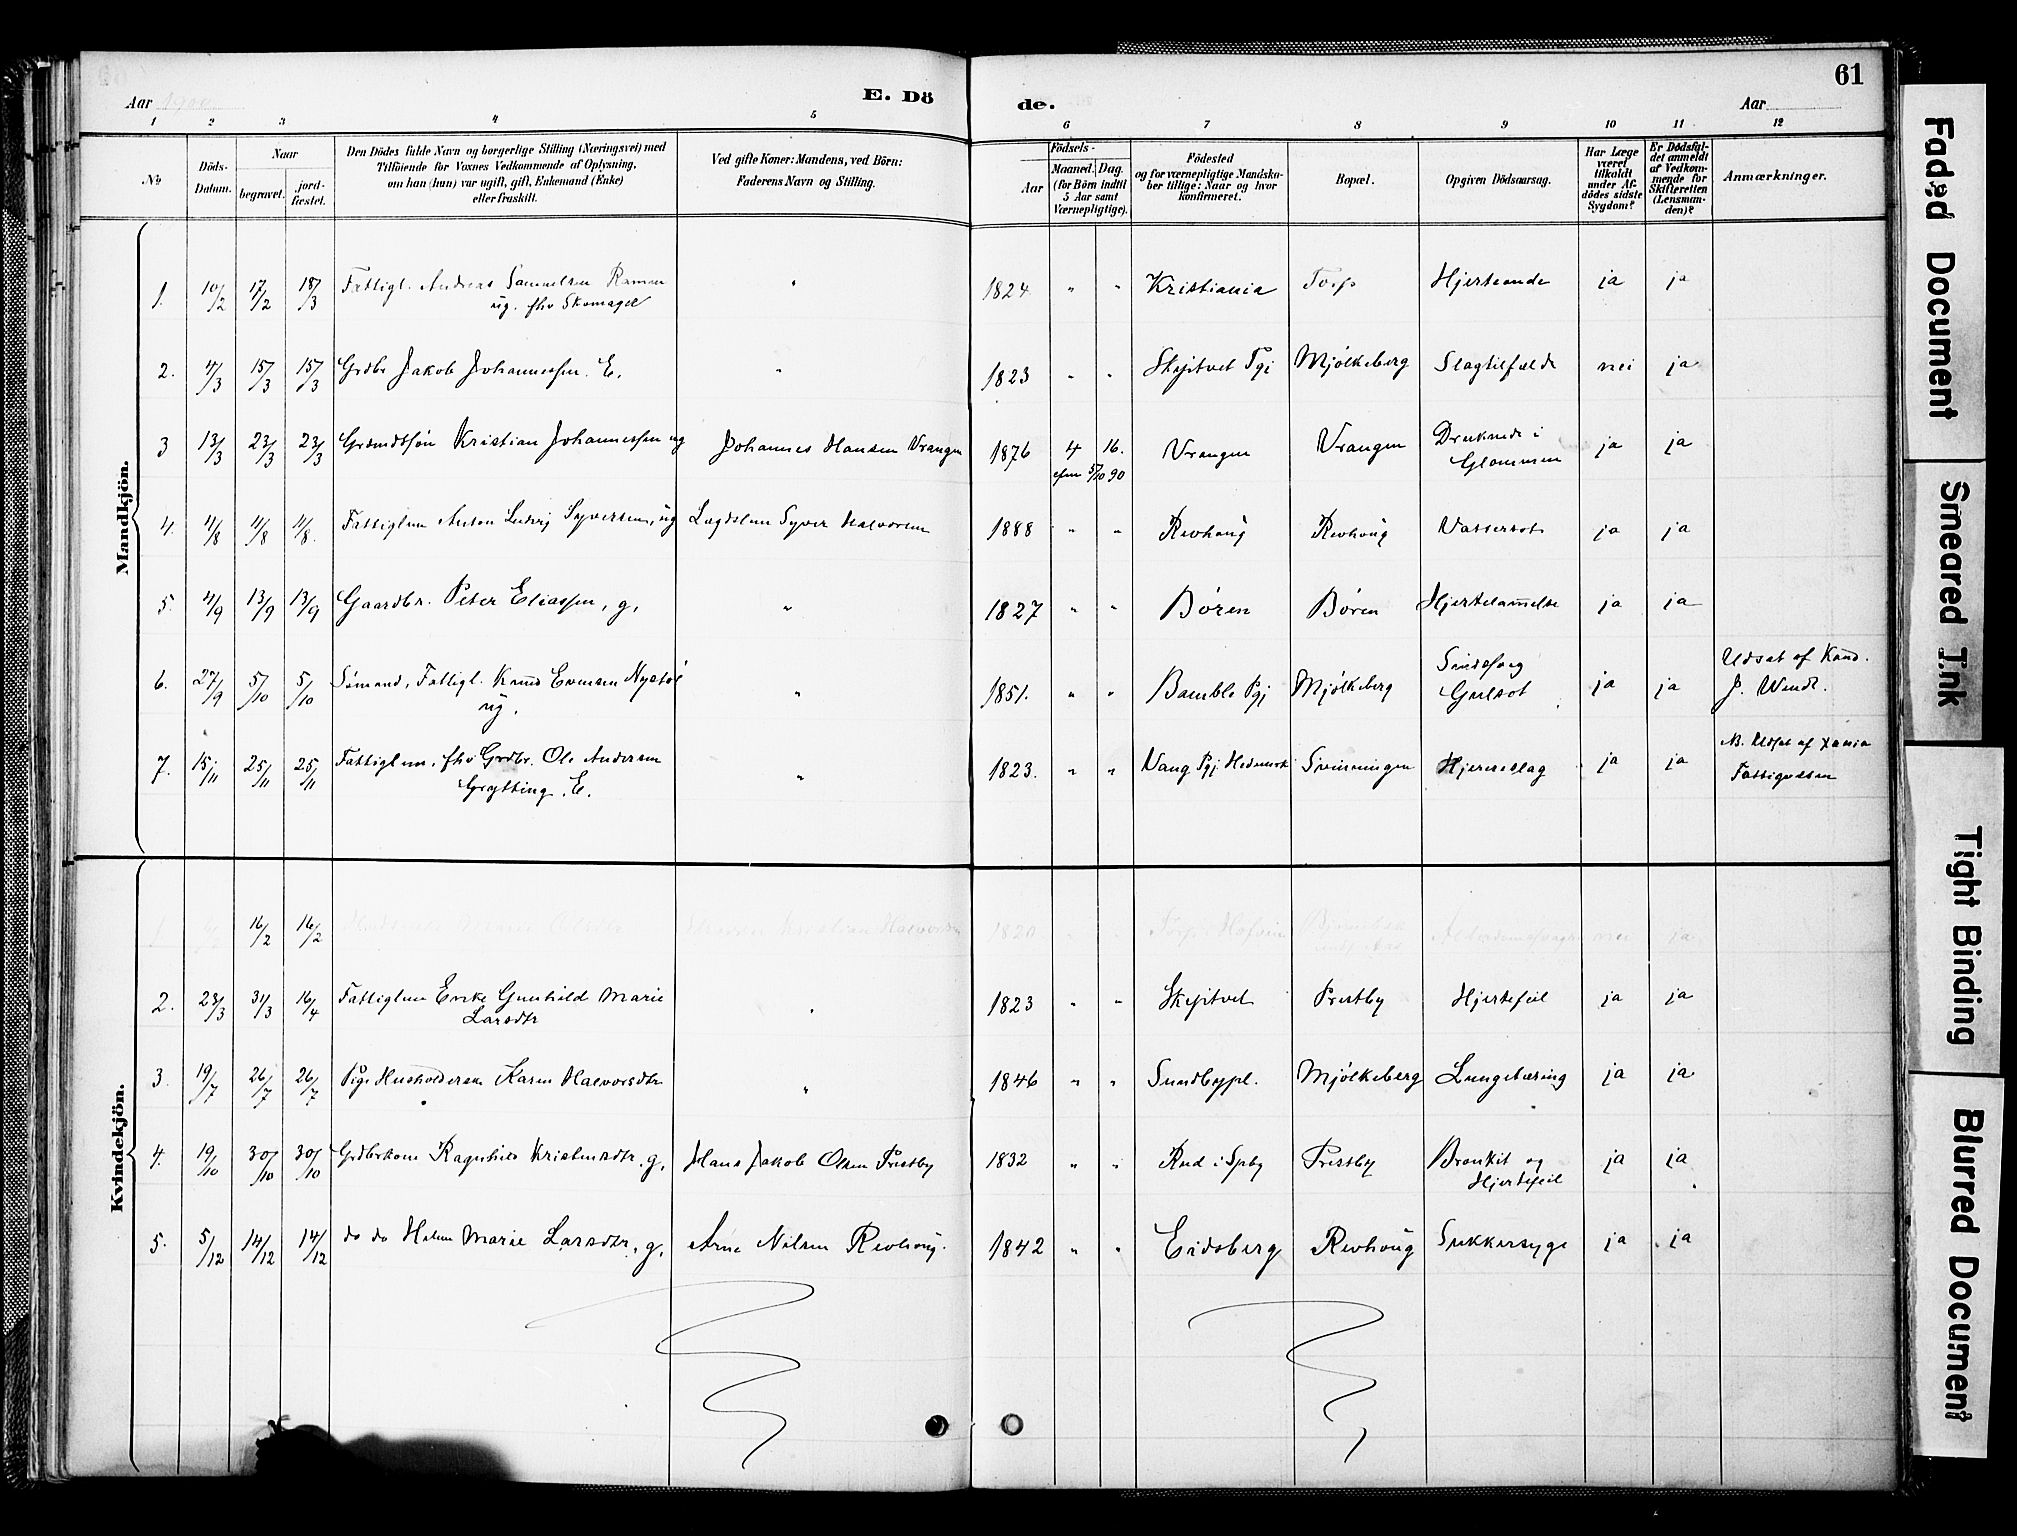 61
Aar 1900
E. Dö
de.
Aar
1 2 3 4 5 6 7 8 9 10 11 12
№
Döds-
Datum.
Naar
begravet.
jord-
fæstet.
Den Dödes fulde Navn og borgerlige Stilling (Næringsvei) med
Tilföiende for Voxnes Vedkommende af Oplysning,
om han (hun) var ugift, gift, Enkemand (Enke)
eller fraskilt.
Ved gifte Koner: Mandens, ved Börn:
Faderens Navn og Stilling.
Födsels-
Aar
Maaned. Dag.
(for Börn indtil
5 Aar samt
Værnepligtige).
Födested
og for værnepligtige Mandska-
ber tillige: Naar og hvor
konfirmeret.
Bopæl.
Opgiven Dödsaarsag.
Har Læge
været
tilkaldt
under Af-
dødes sidste
Sygdom?
Er Dödsfal-
det anmeldt
af Vedkom-
mende for
Skifteretten
(Lensman-
den)?
Anmærkninger.
Mandkjön.
1. 10/2 17/2 18/3 Fattigl. Andreas Samuelsen " 1824 " " Kristiania Torp Hjerteonde ja ja
ug. fhv Skomager
2. 4/3 15/3 15/3 Grdbr Jakob Johannessen. E. " 1823 " " Skjptvet Pgj Mjølkeberg Slagtilfælde nei ja
3 13/3 23/3 23/3 Grdmdssøn Kristian Johannessen ug Johannes Hansen Vrangen 1876 4 16. Vrangen Vrangen Druknede i ja ja
5/10 90 Glommen
4. 4/8 11/8 11/8. Fattiglem Anton Ludvig Syversen, ug Lægdslem Syver Halvorsen 1888 " " Revhoug Revhoug Vattersot ja ja
5. 4/9 13/9 13/9 Gaardbr. Peter Eliassen, g, " 1827 " " Børen Børen Hjertelammelse ja ja
6. 27/9 5/10 5/10 Sømand, Fattigl. Knud Evensen " 1851. " " Bamble Pgj Mjølkeberg Sindssyg ja ja Udsat af Kand.
ug. Gulsot J. Wendt.
7. 15/11 25/11 25/11 Fattiglem, fhv Grdbr. Ole Andersen " 1823. " " Vang Pgj Hedemark Svenningen Hjerteslag ja ja Udsat af Xania
Grytting. E. Fattigvæsen
Kvindekjön.
1 16/2 16/2 Marie Olsdtr Kristian Halvorsen 1820 " " Hafvin nei ja
2. 23/3 31/3 16/4 Fattiglem Enke Gunhild Marie " 1823 " " Skjptvet Prestby Hjertefeil ja ja
Larsdtr
3. 19/7 26/7 26/7 Pige Husholderske Karen Halvorsdtr " 1846 " " Sundbypl. Mjølkeberg Lungetæring ja ja
4. 19/10 30/10 30/10 Grdbrkone Ragnhild Kristensdtr, g, Hans Jakob Olsen Prestby 1832 " " Rud i Spbg Prestby Bronkit og ja ja
Hjertefeil
5. 5/12 14/12 14/12 do do Helene Marie Larsdtr, g, Arne Nilsen Revhoug. 1842 " " Eidsberg Revhoug Sukkersyge ja ja
Faded Document
Smeared Ink
Tight Binding
Blurred Document